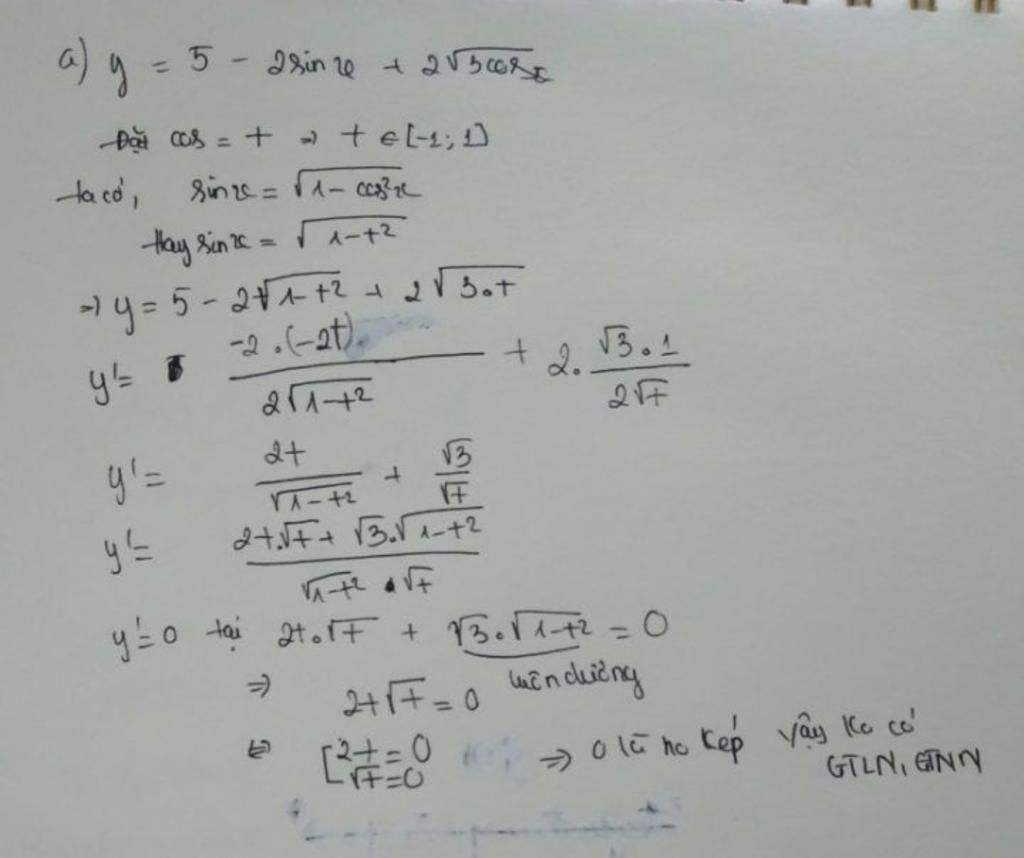 a) y = 5 - 2sin x + 2√3cosx
Đặt cos = t => t ∈ [-1; 1]
ta có, sin x = √1 - cos²x
Hay sin x = √1-t²
=> y = 5 - 2√1-t² + 2√3.t
y' = -2.(-2t) / 2√1-t² + 2. √3.1 / 2√t
y' = 2t / √1-t² + √3 / √t
y' = 2t.√t + √3.√1-t² / √1-t² . √t
y' = 0 tại 2t.√t + √3.√1-t² = 0
luôn dương
=> 2t√t = 0
⇔ [2t = 0 √t = 0 => 0 là no kép Vậy ko có GTLN, GTNN